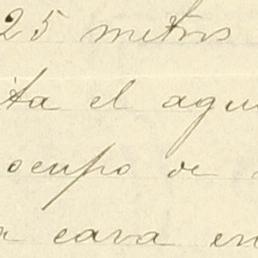 25 metros
ita el agu
ocupo de
a cava en